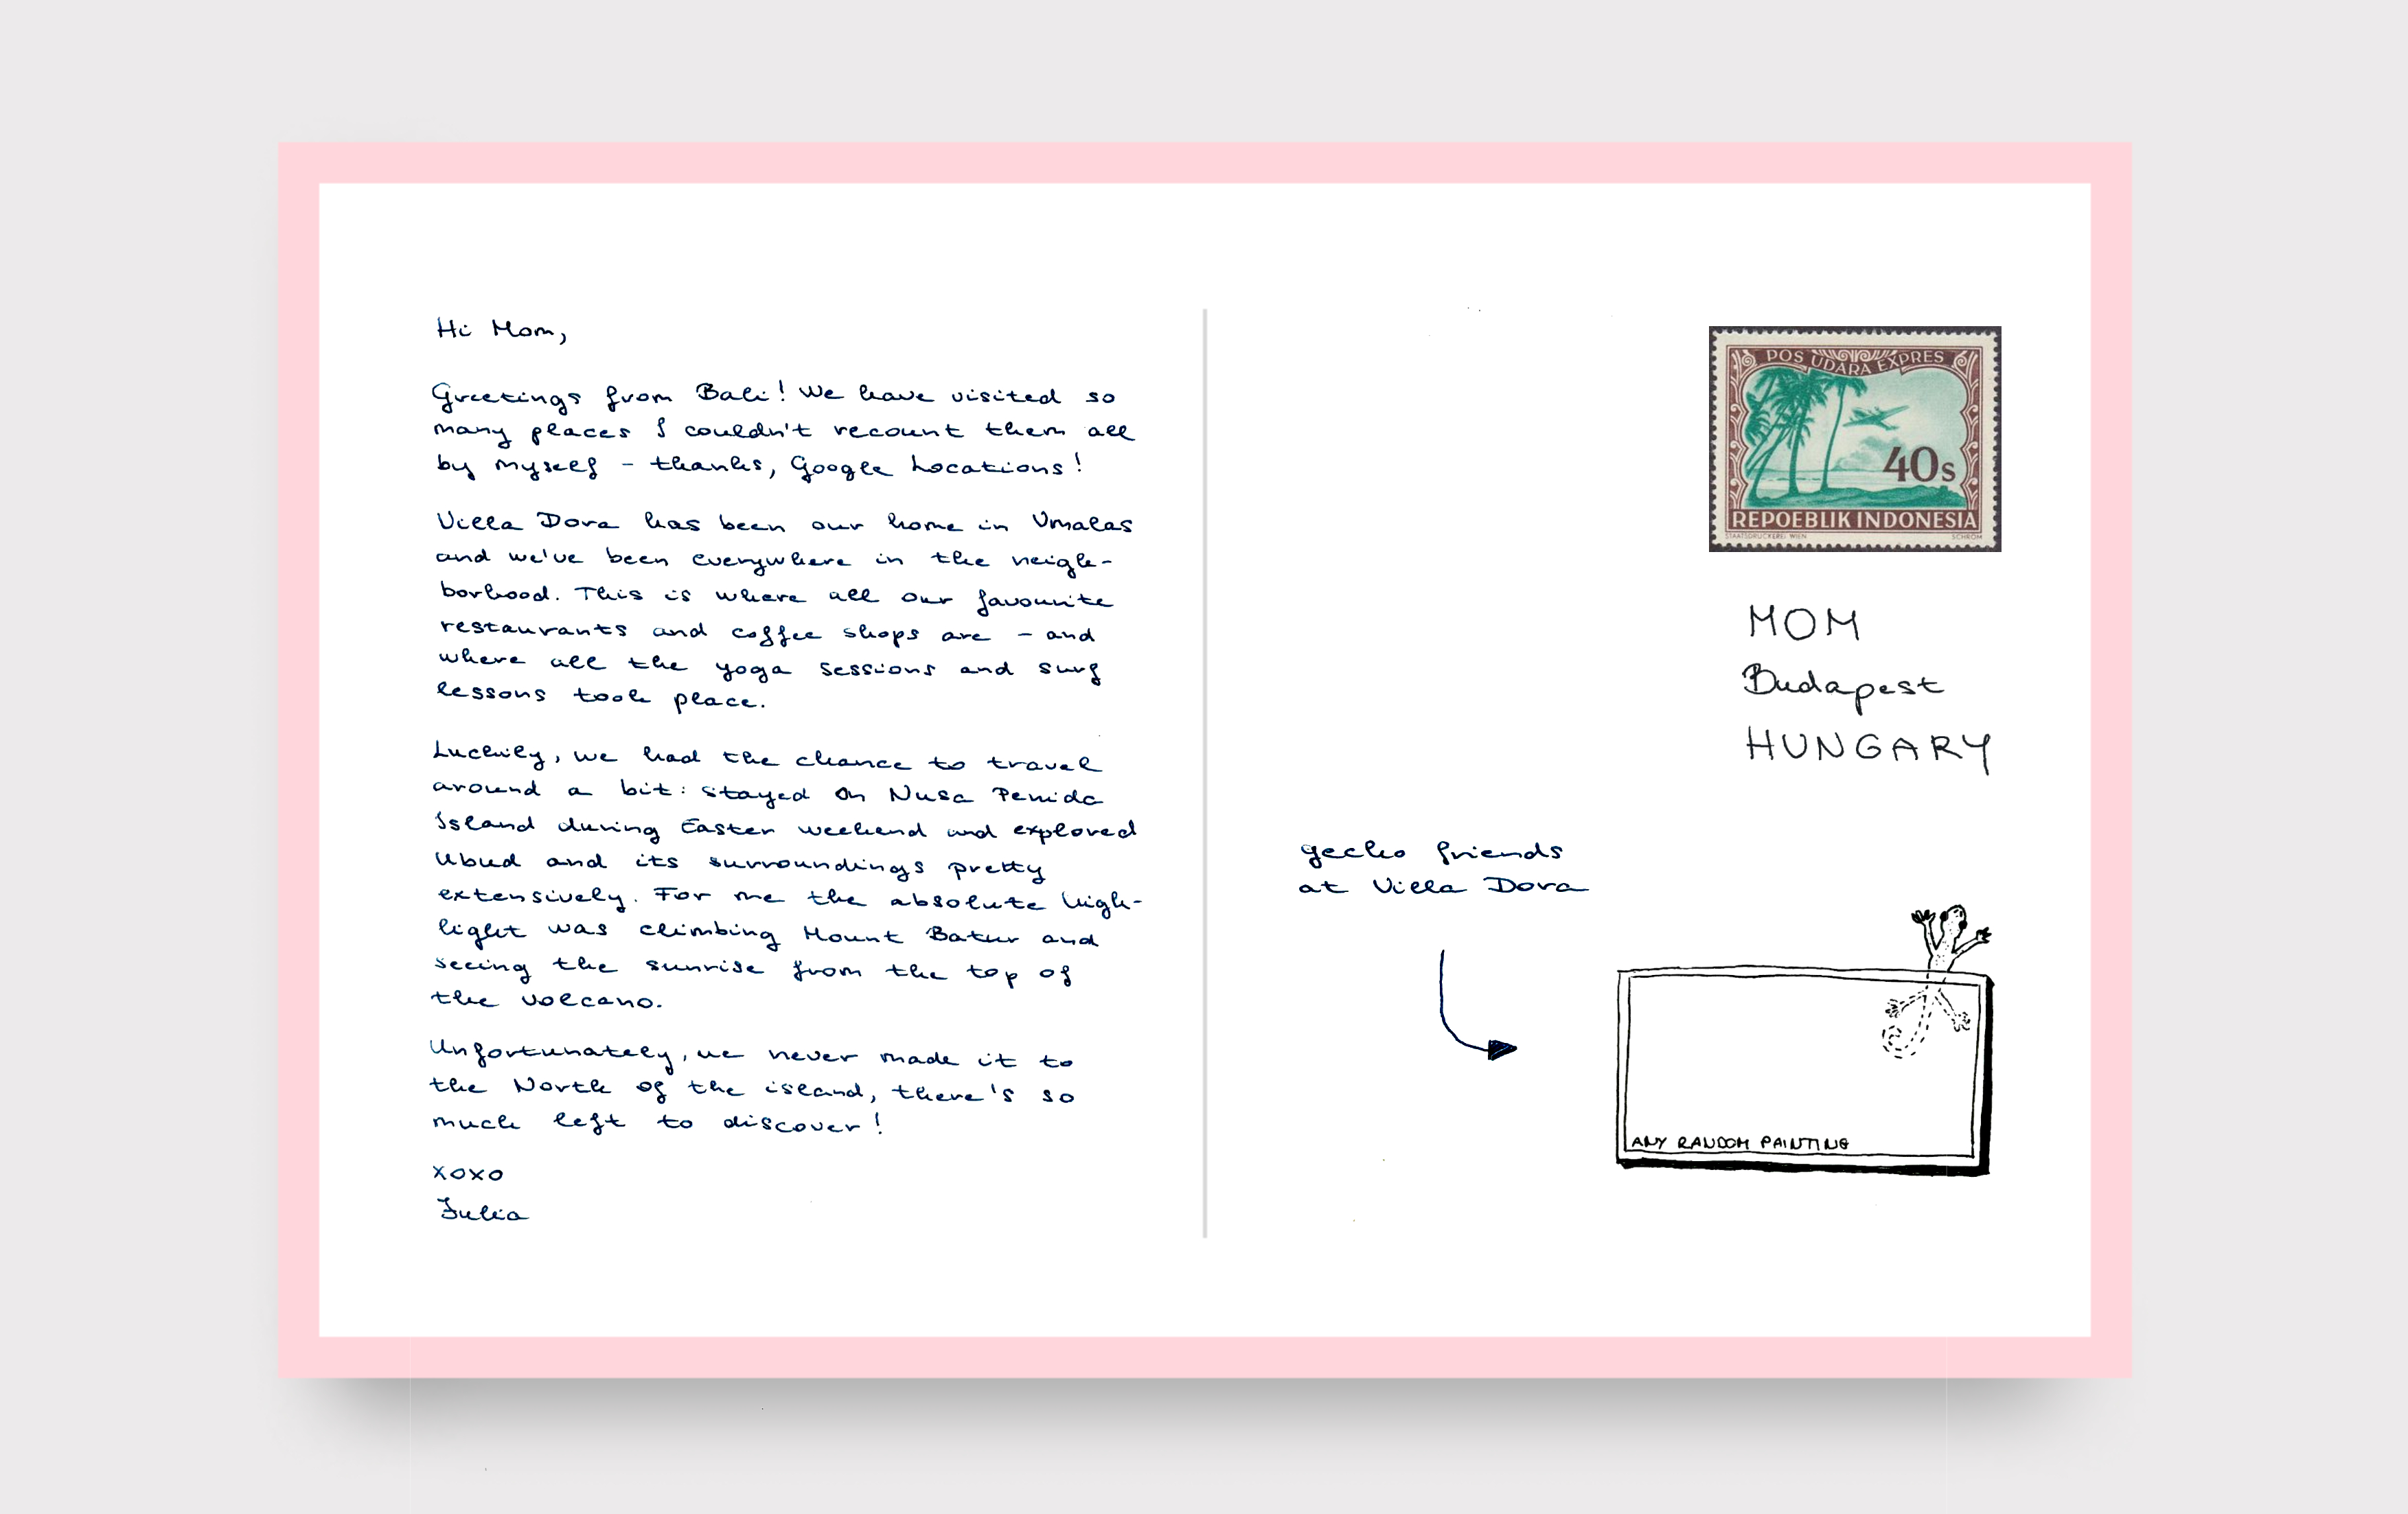 Hi Mom,
Greetings from Bali! We have visited so
many places I couldn't recount them all
by myself - thanks, Google Locations!
Villa Dora has been our home in Umalas
and we've been everywhere in the neigh-
borhood. This is where all our favourite
restaurants and coffee shops are - and
where all the yoga sessions and surf
lessons took place.
Luckily, we had the chance to travel
around a bit: stayed on Nusa Penida
Island during Easter weekend and explored
Ubud and its surroundings pretty
extensively. For me the absolute high-
light was climbing Mount Batur and
seeing the sunrise from the top of
the volcano.
Unfortunately, we never made it to
the North of the island, there's so
much left to discover!
xoxo
Julia
POS UDARA EXPRES
40s
REPOEBLIK INDONESIA
STAATSDRUCKEREI WIEN SCHROM
MOM
Budapest
HUNGARY
gecko friends
at Villa Dora
ANY RANDOM PAINTING